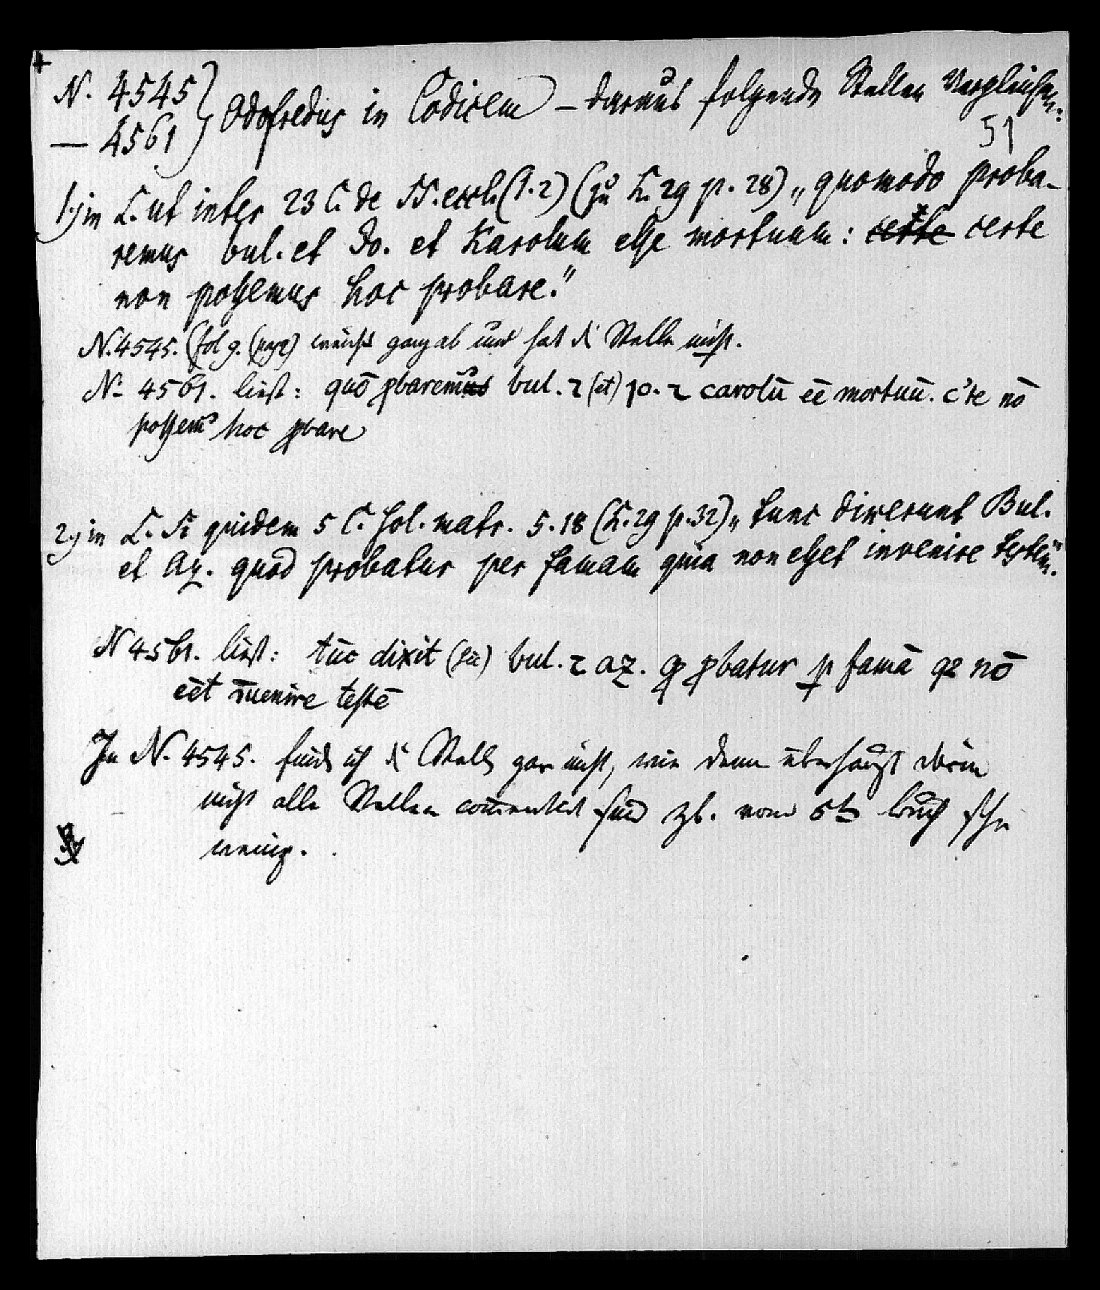 N. 4545 } Odofredus in Codicem – daraus folgende Stellen vergleichen:
— 4561
51
1) in L. ut inter 23 C. de SS. eccl. (1.2) (zu K. 29 p. 28) „quomodo proba-
remus bul. et Jo. et Karolum esse mortuum: certe certe
non possemus hoc probare."
N. 4545. (fol 9. (pge) weicht ganz ab und hat d Stelle nicht.
N. 4561. liest: quō ꝓbaremus bul. ⁊ (et) jo. ⁊ carolū eē mortuū. c'te nō
possem9 hoc ꝓbare
2) in L. Si quidem 5 C. sol. matr. 5.18 (K. 29 p. 32) „tunc dixerunt Bul.
et Az. quod probatur per famam quia non esset invenire testem."
N 4561. liest: tūc dixit (sic) bul. ⁊ az. ꝙ ꝓbatur ꝑ famā qz nō
eēt īuenire testē
In N. 4545. finde ich d Stelle gar nicht, wie denn überhaupt darin
nicht alle Stellen commentirt sind zb. vom 5ten Buch sehr
wenig.